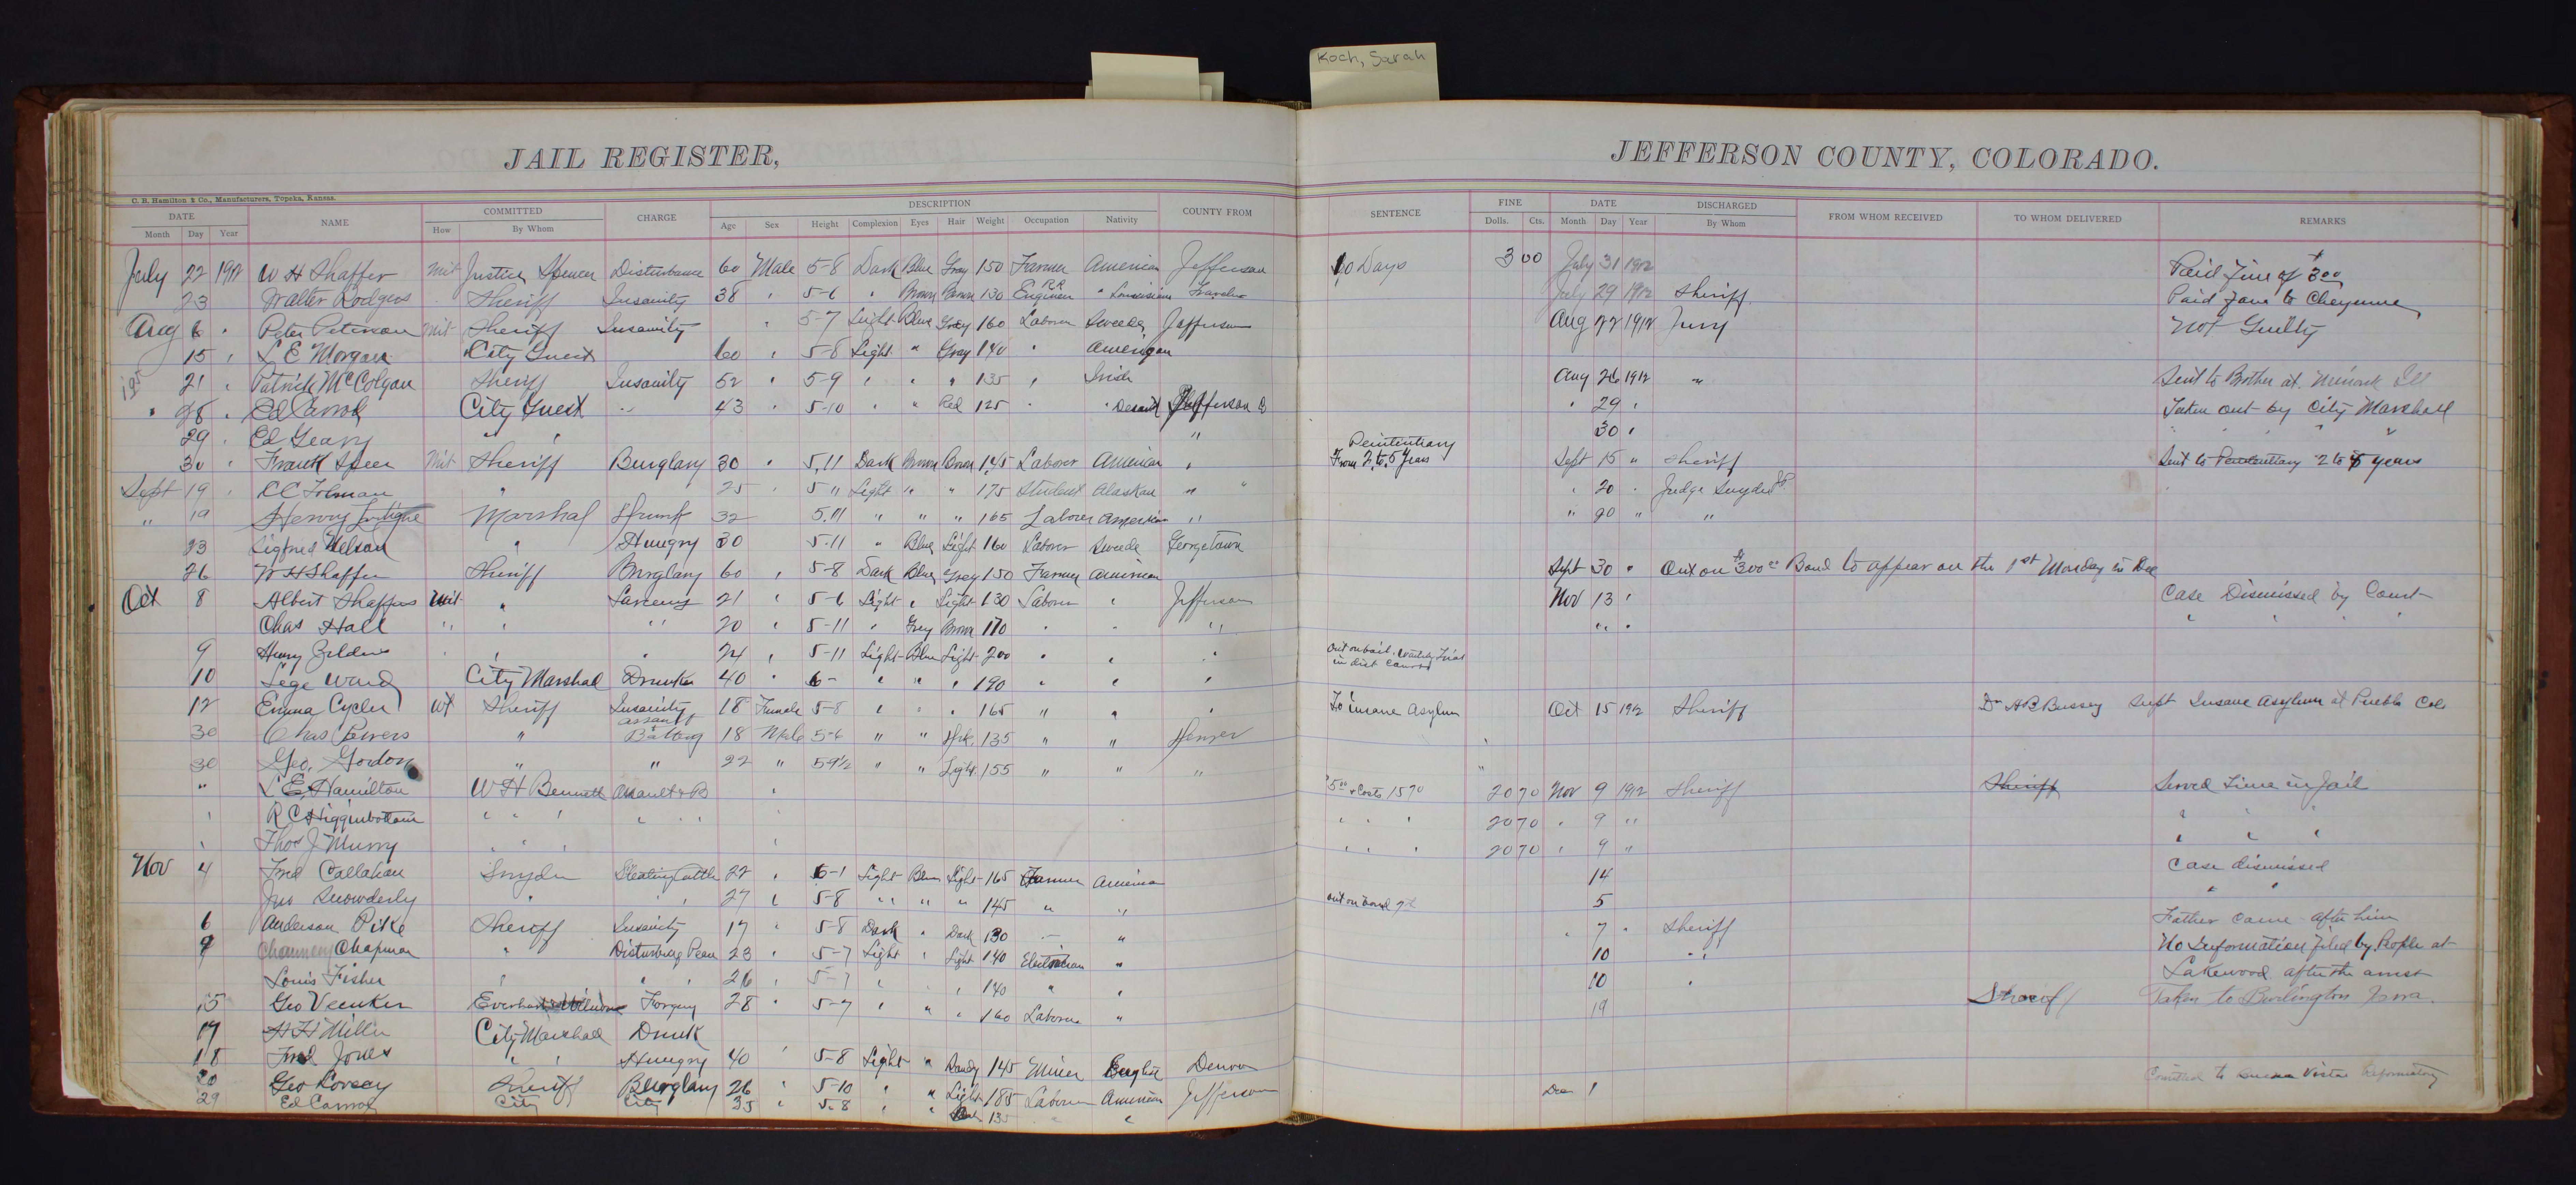 Koch, Sarah
JAIL REGISTER,
JEFFERSON COUNTY, COLORADO.
C. B. Hamilton & Co., Manufacturers, Topeka, Kansas.
DATE NAME COMMITTED CHARGE DESCRIPTION COUNTY FROM SENTENCE FINE DATE DISCHARGED FROM WHOM RECEIVED TO WHOM DELIVERED REMARKS
Month Day Year How By Whom Age Sex Height Complexion Eyes Hair Weight Occupation Nativity Dolls. Cts. Month Day Year By Whom
July 22 1912 W H Shaffer Mit Justice Spencer Disturbance 60 Male 5-8 Dark Blue Gray 150 Farmer American Jefferson 10 Days 3 00 July 31 1912 Paid Fine of $3 00
23 Walter Rodgers Sheriff Insanity 38 " 5-6 " Brown Brown 130 RR Engineer " Louisiana July 29 1912 Sheriff Paid fare to Cheyenne
Aug 6 " Peter Peterson Mit Sheriff Insanity " 5-7 Light Blue Gray 160 Laborer Sweede Jefferson Aug 22 1912 Jury Not Guilty
15 " L E Morgan City Guest 60 " 5-8 Light " Gray 140 " American
21 " Patrick McColgan Sheriff Insanity 52 " 5-9 " " " 135 " Irish Aug 26 1912 " Sent to Brother at Minonk Ill
" 28 " Ed Carrol City Guest " 43 " 5-10 " " Red 125 " " Jefferson " 29 " Taken out by City Marshall
29 " Ed Geary " " " 30 " " " " "
30 " Frank Speer Mit Sheriff Burglary 30 " 5,11 Dark Brown Brown 145 Laborer American " Penitentiary From 2 to 5 Years Sept 15 " Sheriff Sent to Penitentiary 2 to 5 years
Sept 19 " " 25 " 5 11 Light " " 175 Student Alaskan " " " 20 " Judge Snyder
" 19 Henry Marshal Drunk 32 5.11 " " " 165 Laborer American " " 20 " "
23 Sigfred Nelson " Hungry 30 5-11 " Blue Light 160 Laborer Sweede Georgetown
26 W H Shaffer Sheriff Burglary 60 " 5-8 Dark Blue Grey 150 Farmer American Sept 30 " Out on $300 00 Bond to appear on the 1st Monday in Dec
Oct 8 Albert Shaffer Mit " Larceny 21 " 5-6 Light " Light 130 Laborer " Jefferson Nov 13 " Case Dismissed by Court
Chas Hall " " " 20 " 5-11 " Grey Brown 170 " " " " " " " "
9 Henry " " " 24 " 5-11 Light Blue Light 200 " " " Out on bail. Waiting Trial in dist Court
10 Lege Ward City Marshal Drunk 40 " 6- " " " 190 " " "
12 Emma Cycler Wt Sheriff Insanity 18 Female 5-8 " " " 165 " " " To insane Asylum Oct 15 1912 Sheriff Dr Bussey Supt Insane Asylum at Pueblo Colo
30 Chas Powers " Assault Battery 18 Male 5-6 " " 135 " " Denver
30 Geo. Gordon " " 22 " 5 9½ " " Light 155 " " "
" L E Hamilton W H Bennett Assault & B " $5 00 & Costs 15 70 20 70 Nov 9 1912 Sheriff Sheriff Served Time in Jail
" R C Higginbottom " " " " " " " " " 20 70 " 9 " " " "
" Thos J Murry " " " " " " " 20 70 " 9 " " " "
Nov 4 Fred Callahan Snyder Stealing Cattle 22 " 6-1 Light Light 165 Farmer American 14 Case dismissed
Jno Snowderly " " " 27 " 5-8 " " " 145 " " out on bond 5 " "
6 Anderson Pike Sheriff Insanity 17 " 5-8 Dark " Dark 130 " " " 7 " Sheriff Father came after him
9 Chauncey Chapman " Disturbing Peace 23 " 5-7 Light " Light 140 Electrician " 10 " No Information filed by People at
Louis Fisher " " " 26 " 5-7 " " " 140 " " 10 " Lakewood after the arrest
15 Geo Veenker Forgery 28 " 5-7 " " " 160 Laborer " 19 Sheriff Taken to Burlington Iowa.
17 H H Miller City Marshal Drunk
18 Fred Jones " " Hungry 40 " 5-8 Light " Sandy 145 Miner English Denver
20 Geo Sheriff Burglary 26 " 5-10 " " Light 185 Laborer American Jefferson Dec 1 to Buena Vista Reformatory
29 Ed Carrol City City 35 " 5-8 " " 135 " "